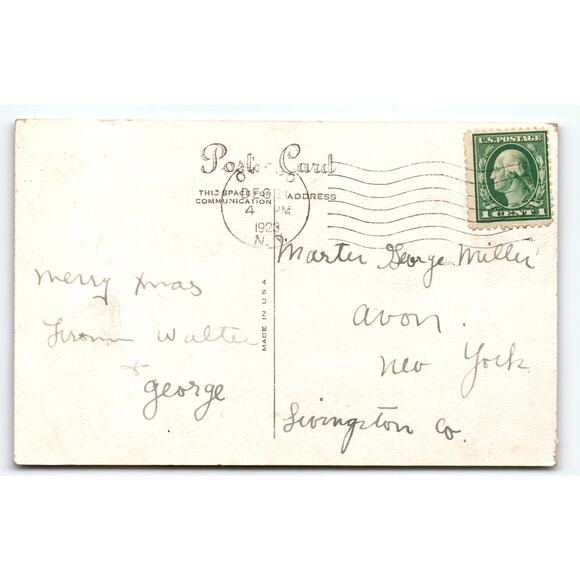 Post Card
THIS SPACE FOR
COMMUNICATION
ADDRESS
DEC 21
4 PM
1923
N.Y.
U.S. POSTAGE
1 CENT 1
Merry Xmas
From Walter
&
George
MADE IN U.S.A.
Marter George Miller
Avon.
New York
Livingston Co.